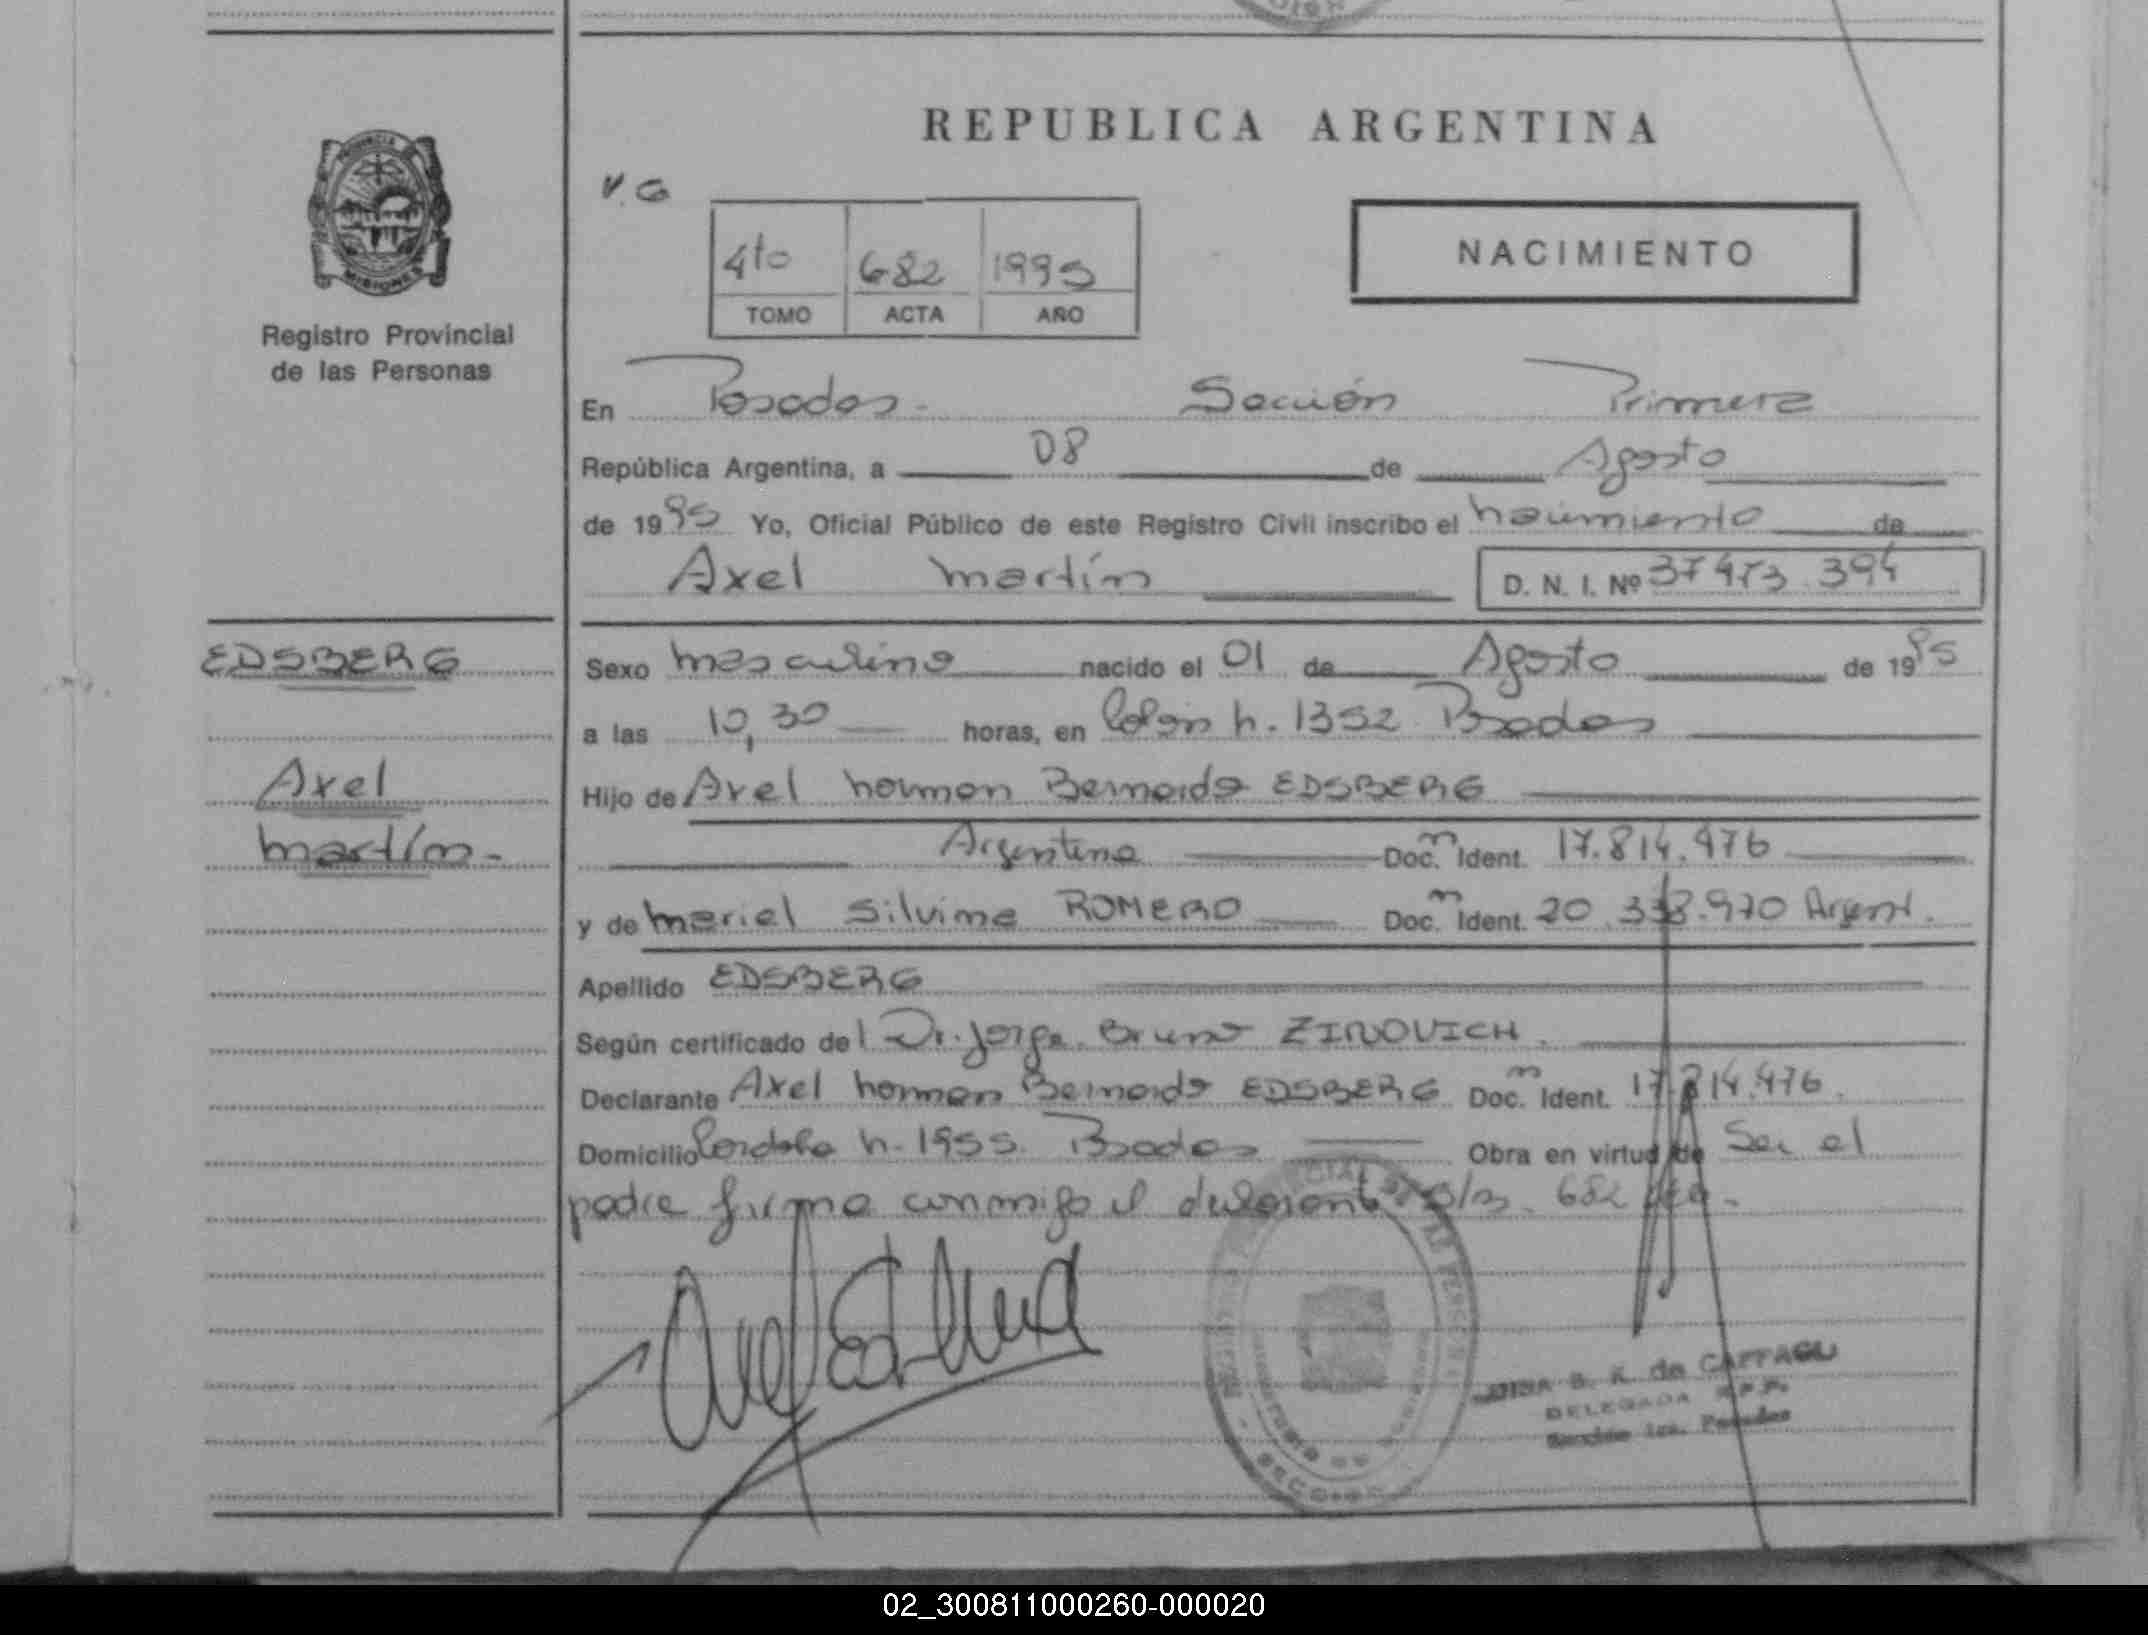 REPUBLICA ARGENTINA
PROVINCIA DE
MISIONES
Registro Provincial
de las Personas
V.G
4to 682 1995
TOMO ACTA AÑO
NACIMIENTO
En Posadas.- Sección Primera
República Argentina, a 08 de Agosto
de 1995 Yo, Oficial Público de este Registro Civil inscribo el nacimiento de
Axel Martín D. N. I. Nº 37473.394
EDSBERG Sexo Masculino nacido el 01 de Agosto de 1995
a las 10,30 horas, en Colón n. 1352 Posadas
Axel Hijo de Axel Norman Bernardo EDSBERG
Martín.- Argentina Doc. n Ident. 17.814.476
y de Mariel Silvina ROMERO Doc. n Ident. 20.338.970 Argent.
Apellido EDSBERG
Según certificado del Dr. Jorge Bruno ZINOVICH.
Declarante Axel Norman Bernardo EDSBERG Doc. n Ident. 17.814.476.
Domicilio Cordoba n. 1955. Posadas Obra en virtud de Ser el
padre firma conmigo el declarante 682
S. K. de
DELEGADA R.P.P.
Sección 1ra. Posadas
SECCION
02_300811000260-000020